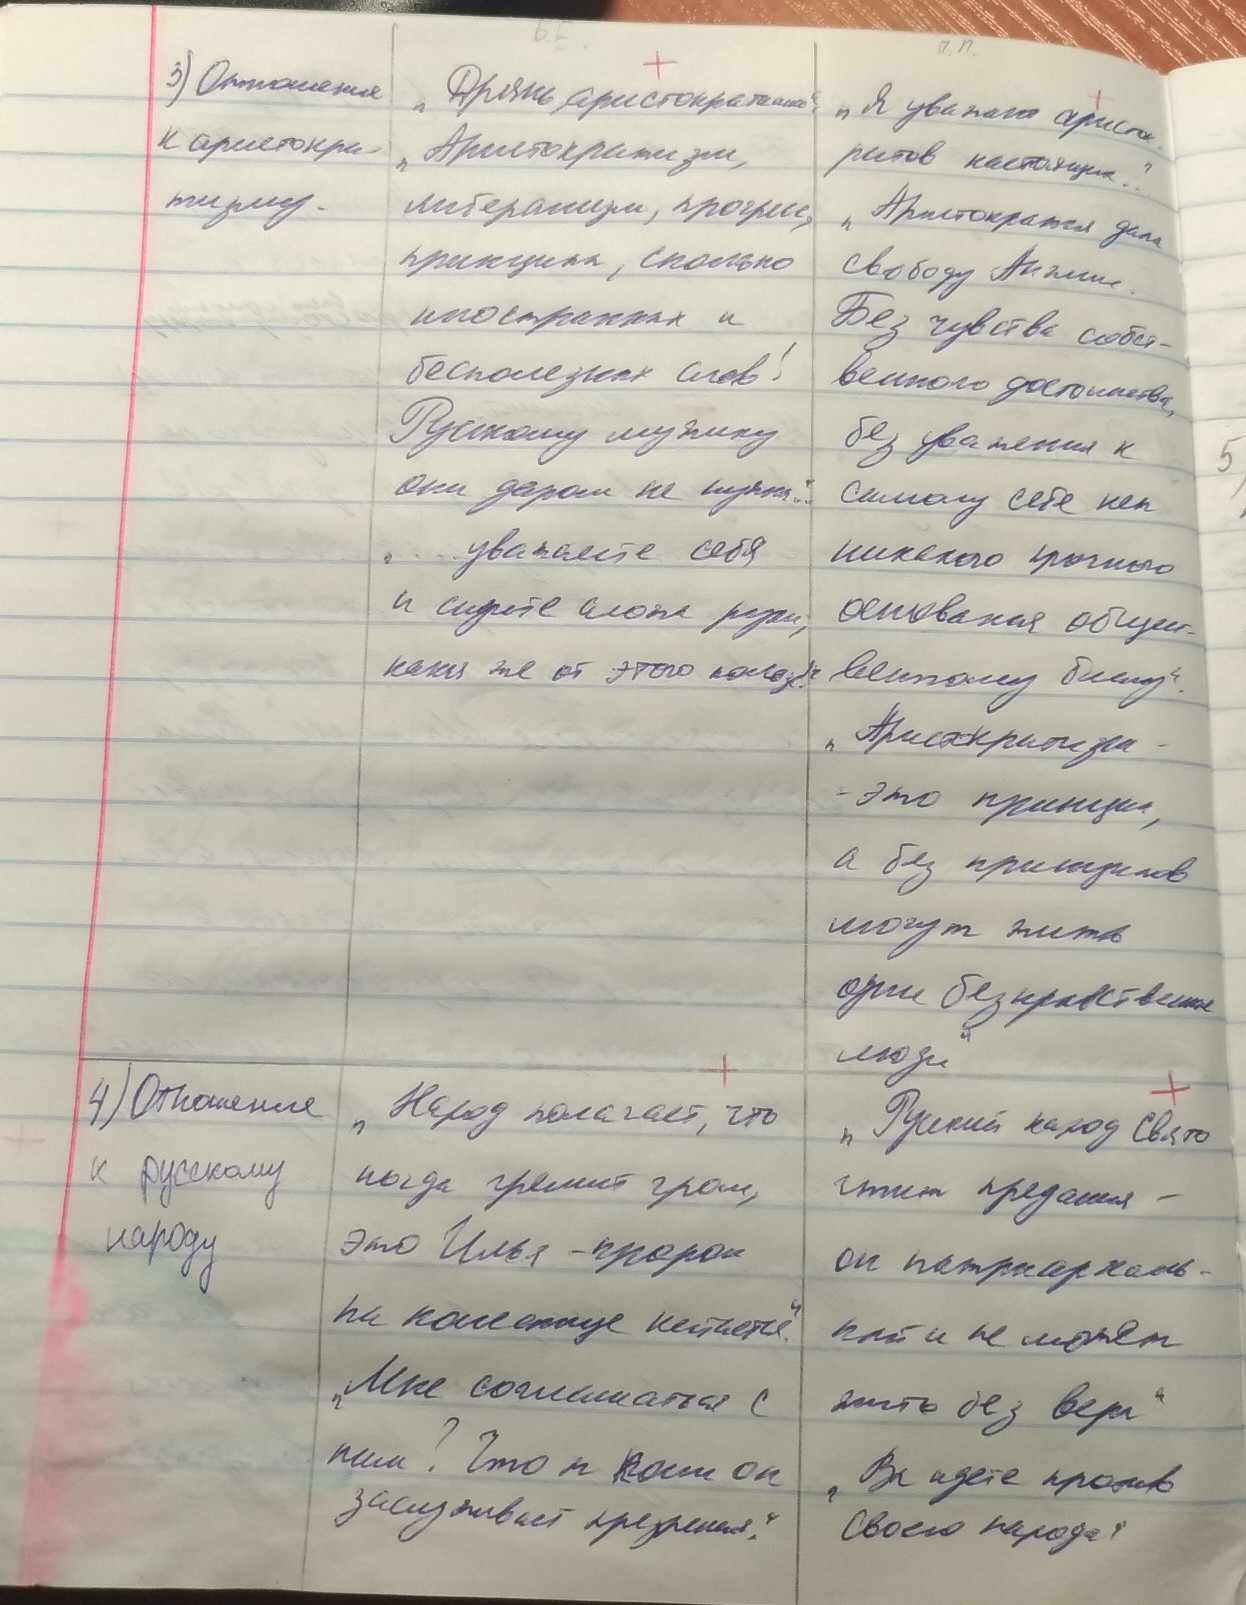 Б.Е.
П.П.
3) Отношение
к аристокра-
тизму.
„Дрянь, аристократишко“
„Аристократизм,
либерализм, прогресс,
принципы, сколько
иностранных и
бесполезных слов!
Русскому мужику
они даром не нужны.“
„...уважаете себя
и сидите сложа руки,
какая же от этого польза?“
„Я уважаю аристок-
ратов настоящих..“
„Аристократия дала
свободу Англии.
Без чувства собст-
венного достоинства,
без уважения к
самому себе нет
никакого прочного
основания общест-
венному благу“.
„Аристократизм -
- это принцип,
а без принципов
могут жить
одни безнравственные
люди“
4) Отношение
к русскому
народу
„Народ полагает, что
когда гремит гром,
это Илья-пророк
на колеснице катается“.
„Мне соглашаться с
ним? Что ж коли он
заслуживает презрения.“
„Русский народ свято
чтит предания -
он патриархаль-
ный и не может
жить без веры“
„Вы идете против
своего народа“
5